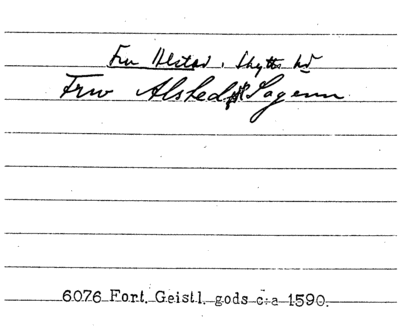 Fru Alstad. Skytts hd
Frw Alsted Sagenn
6076 Fort. Geistl. gods c:a 1590.